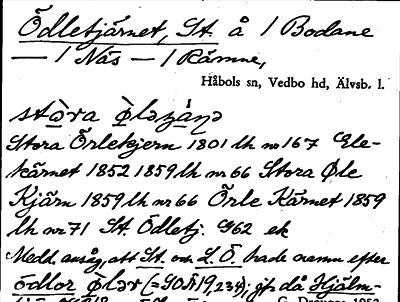 Ödletjärnet, St. å 1 Bodane
— 1 Näs — 1 Rämne,
Håbols sn, Vedbo hd, Älvsb. l.
stòra ø̀ləʒa̓nə
Stora Örlekjern 1801 lh nr 167 Øle-
kärnet 1852 1859 lh nr 66 Stora Øle
Kjärn 1859 lh nr 66 Örle Kärnet 1859
lh nr 71 St. Ödletj. G62 ek
Medd. ansåg, att St. och L. Ö. hade namn efter
ödlor øləɾ (= SOÄ 19, 234); jfr då Hjälm-